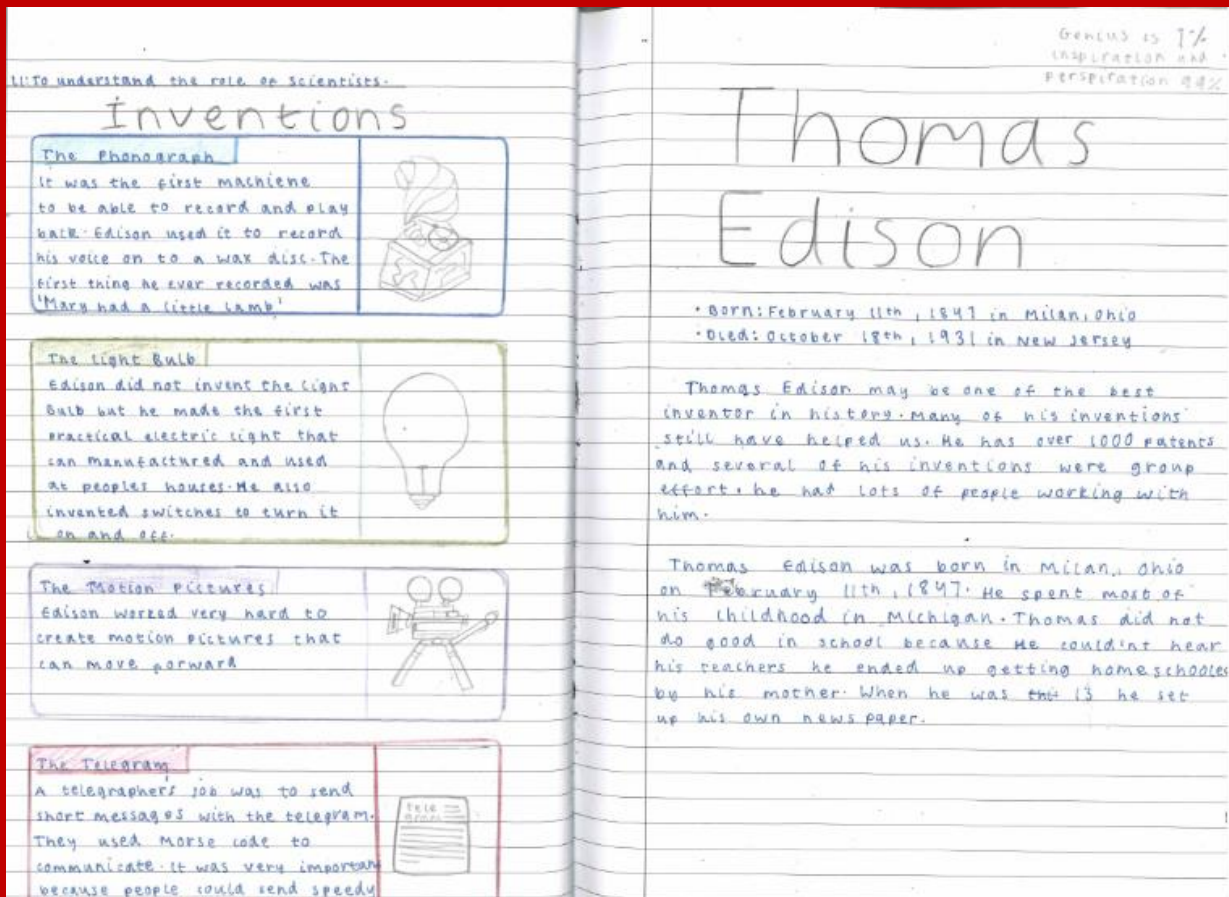 LI: To understand the role of scientists.
Inventions
The Phonograph
It was the first machiene
to be able to record and play
back. Edison used it to record
his voice on to a wax disc. The
first thing he ever recorded was
'Mary had a little lamb'
The Light Bulb
Edison did not invent the light
Bulb but he made the first
practical electric light that
can manufactured and used
at peoples houses. He also
invented switches to turn it
on and off.
The Motion Pictures
Edison worked very hard to
create motion pictures that
can move forward
The Telegram
A telegrapher's job was to send
short messages with the telegram.
They used Morse code to
communicate. It was very important
because people could send speedy
tele
gram
Genius is 1%
inspiration and
perspiration 99%
Thomas
Edison
• Born: February 11th, 1847 in Milan, Ohio
• Died: October 18th, 1931 in New Jersey
Thomas Edison may be one of the best
inventor in history. Many of his inventions
still have helped us. He has over 1000 patents
and several of his inventions were group
effort. he had lots of people working with
him.
Thomas Edison was born in Milan, Ohio
on February 11th, 1847. He spent most of
his childhood in Michigan. Thomas did not
do good in school because He could'nt hear
his teachers he ended up getting homeschooled
by his mother. When he was 13 he set
up his own news paper.